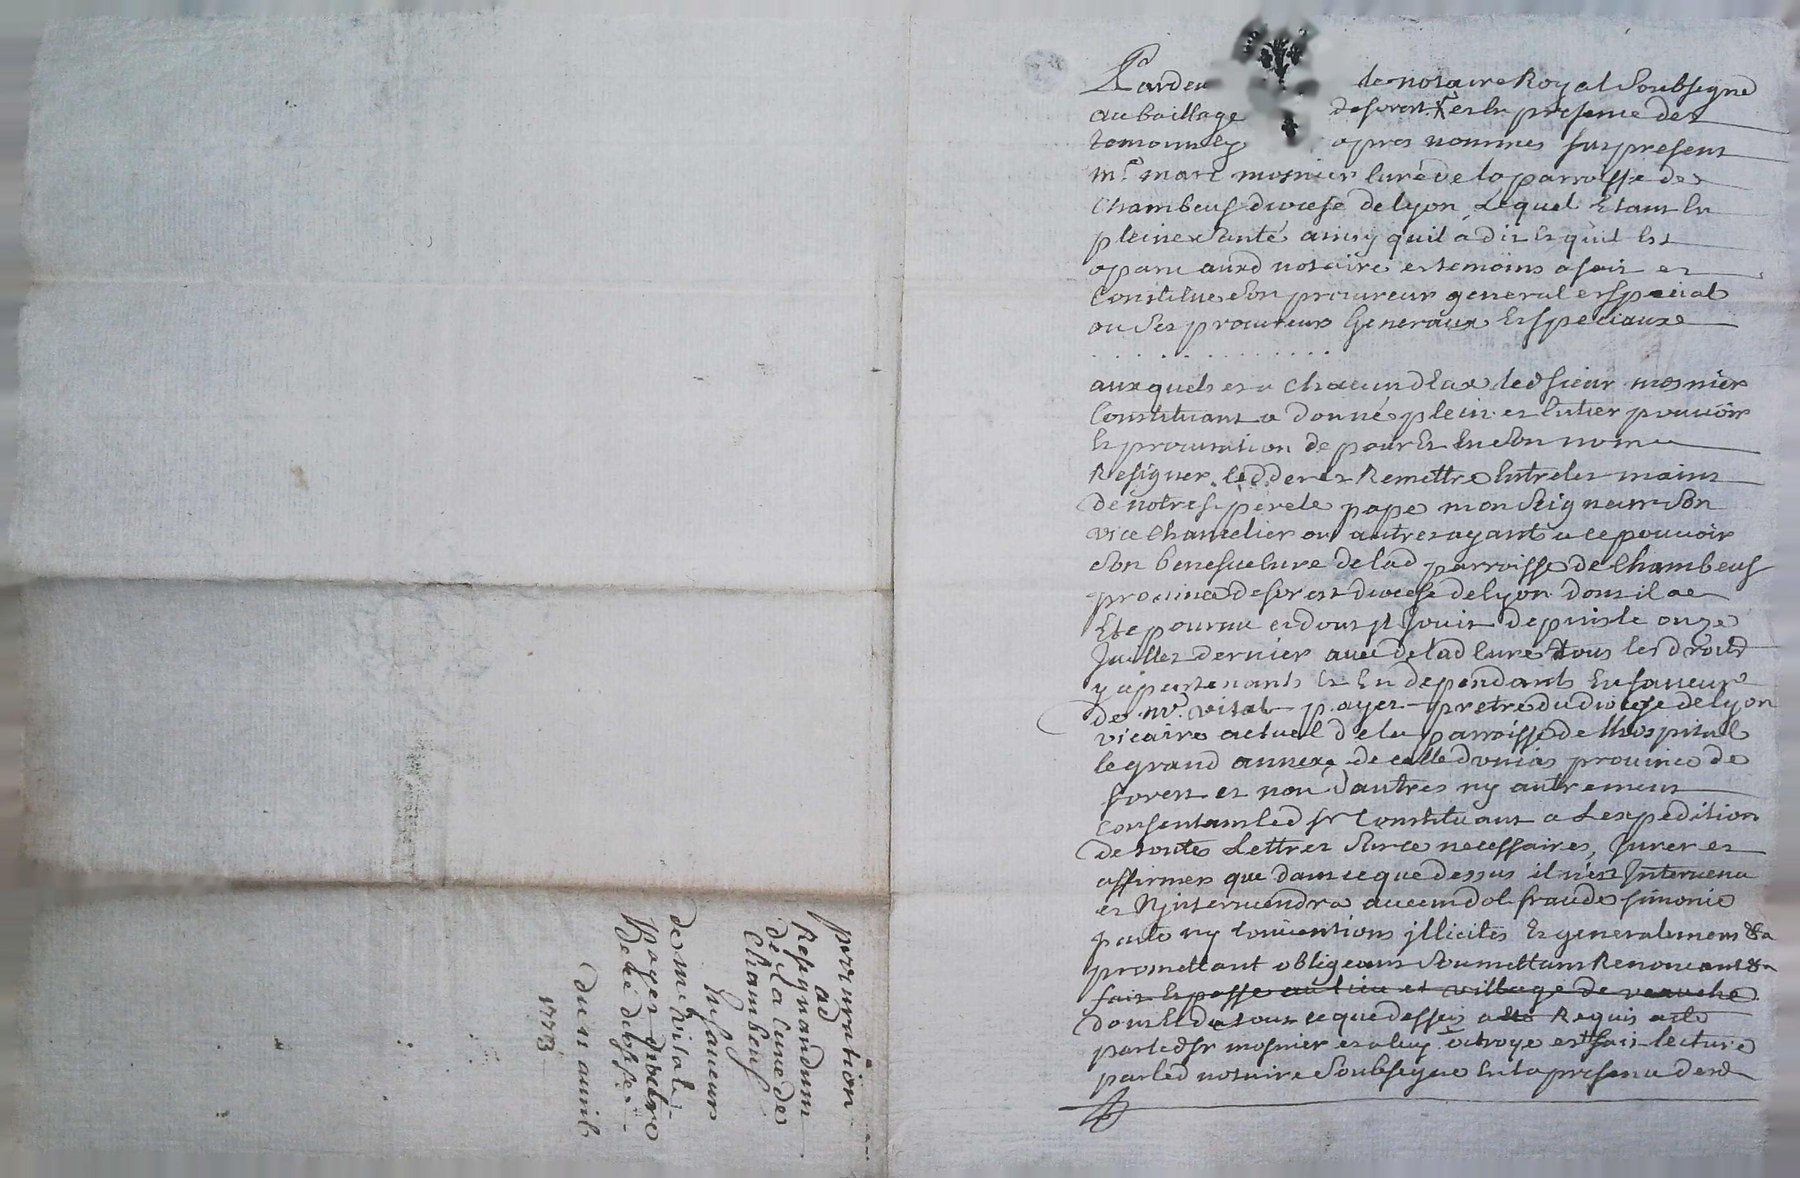 Pardev le notaire Royal Soubsigne
au baillage de forest et en presence des
temoins cy apres nommes fut present
mre marc mosnier Curé de la parroisse de
Chambeuf diocese de lyon, Lequel Etant En
pleine Santé ainsy quil a dit Et quil Est
aparu aud notaire et temoins a fait et
Constitue Son procureur general et Special
ou Ses procureurs Generaux Et Speciaux
. . . . . . . . . . . . . .
auxquels et a Chacun dEux led sieur mosnier
Constituant a donné plein et Entier pouvoir
Et procuration de pour Et En Son nom
Resigner ceder et Remettre Entre les mains
de notre st pere le pape monseigneur Son
vice Chancelier ou autres ayants a ce pouvoir
Son benefice Cure de lad parroisse de Chambeuf
province de forest diocese de lyon dont il a
Ete pourvu et dont jl Jouit depuis le onze
Juillet dernier avec de lad Cure tous les droits
y apartenants Et En dependants En faveur
de mre vital payet pretre du diocese de lyon
vicaire actuel de la parroisse de lhospital
le grand annexe de celle dunias province de
forest et non dautres ny autrement
Consentant led sr Constituant a Lexpedition
de toutes Lettres Sur ce necessaires, Jurer et
affirmer que dans ce que dessus il nest Intervenu
et Ninterviendra aucun dol fraude simonie
pacte ny Conventions jllicites Et generalement &a
promettant obligeant Soumettant Renoncant &a
fait Et passé au lieu et village de veauche
dont Et du tout ce que dessus acte Requis a la
part dud sr mosnier et a luy octroye et fait lecture
par led notaire Soubsigne En la presence de
procuration
ad
Resignandum
de La Cure de
Chambeuf
En faveur
de mre vital
du 11 avril
1773